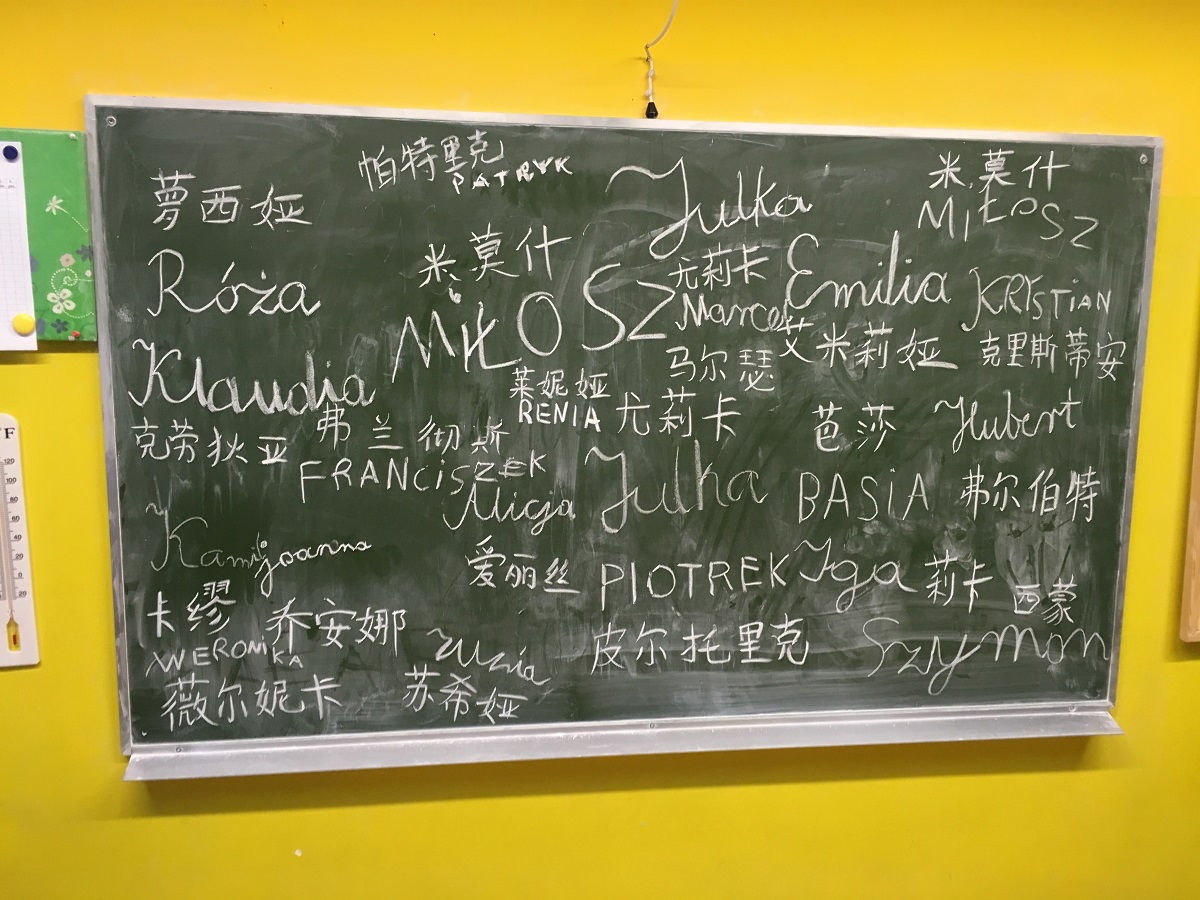 萝西娅
Róża
帕特里克
PATRYK
米莫什
MIŁOSZ
Julka
尤莉卡
Marcel
马尔瑟
Emilia
艾米莉娅
米莫什
MIŁOSZ
KRYSTIAN
克里斯蒂安
Klaudia
克劳狄亚
弗兰彻斯
FRANCISZEK
莱妮娅
RENIA
尤莉卡
Julka
芭莎
BASIA
Hubert
弗尔伯特
Alicja
爱丽丝
Kamil
卡缪
Joanna
乔安娜
PIOTREK
皮尔托里克
Iga
莉卡
西蒙
Szymon
WERONIKA
薇尔妮卡
Zuzia
苏希娅
F
120
100
80
60
40
20
0
20